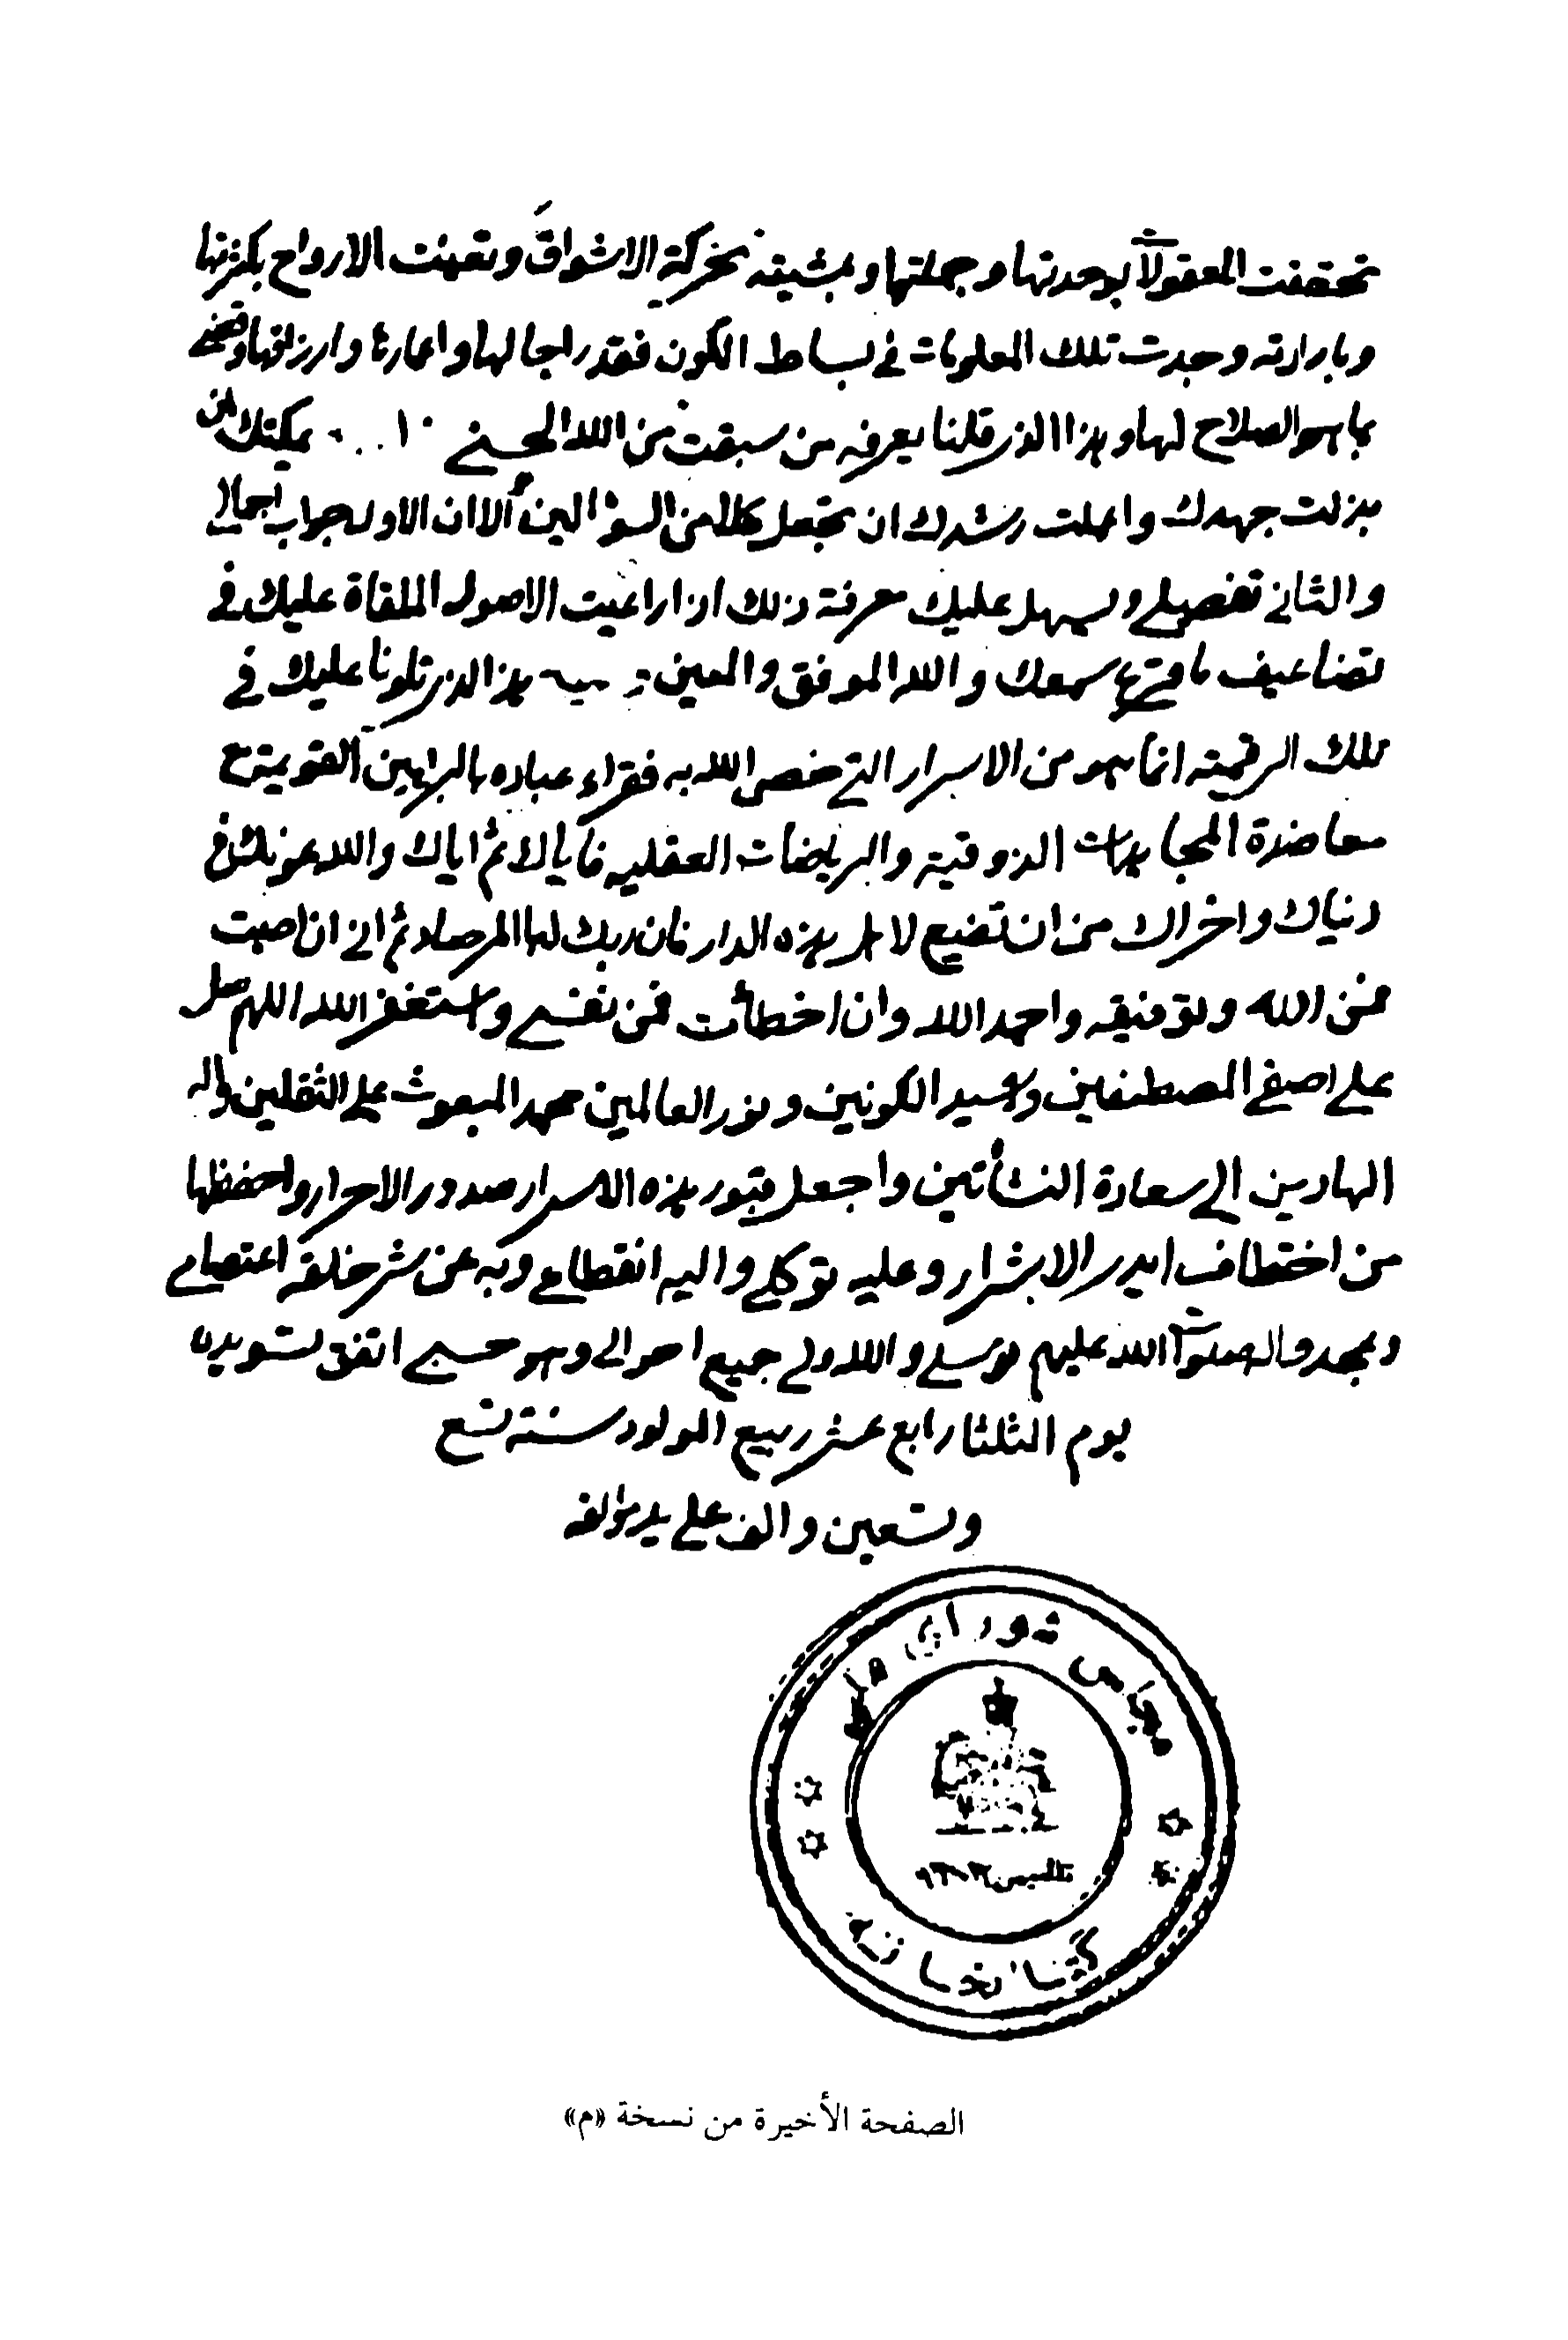 تحققت المعقولات بوحدتها وجملتها وبمشيته تحركة الاشواق وتعينت الارواح بكثرتها
وبارادته وجدت تلك المعلومات في بساط الكون فقدر اجالها واعمارها وارزاقها وقضى
بما هو الصلاح لها وهذا الذي قلنا يعرفه من سبقت من الله الحسنى يمكنك ان
بذلت جهدك واعملت رشدك ان تجعل كلا من السؤالين الا ان الاول جواب اجمالي
والثاني تفصيلي ويسهل عليك معرفة ذلك اذا راعيت الاصول الملقاة عليك في
تضاعيف ما قرع سمعك والله الموفق والمعين هذا الذي تلونا عليك في
تلك الرقيمة انما هو من الاسرار التي خص الله به فقراء عباده بالبراهين القويمة مع
معاضدة المجاهدات الذوقية والرياضات العقلية فاياك ثم اياك والله عونك في
دنياك واخراك من ان تضيع لاهل هذه الدار فان ربك لبالمرصاد ثم اني ان اصبت
فمن الله وبتوفيقه واحمد الله وان اخطأت فمن نفسي واستغفر الله اللهم صل
على اصفى المصطفين وسيد الكونين ونور العالمين محمد المبعوث على الثقلين واله
الهادين الى سعادة النشأتين واجعل قبور هذه الاسرار صدور الاحرار واحفظها
من اختطاف ايدي الاشرار وعليه توكلي واليه انقطاعي وبه عن شر خلقه اعتصامي
وبمحمد واله صلوات الله عليهم توسلي والله ولي جميع احوالي وهو حسبي اتفق تسويده
يوم الثلثا رابع عشر ربيع المولود سنة تسع
وتسعين والف على يد مؤلفه
مجلس شورای ملی
كتابخانه
الصفحة الأخيرة من نسخة «م»